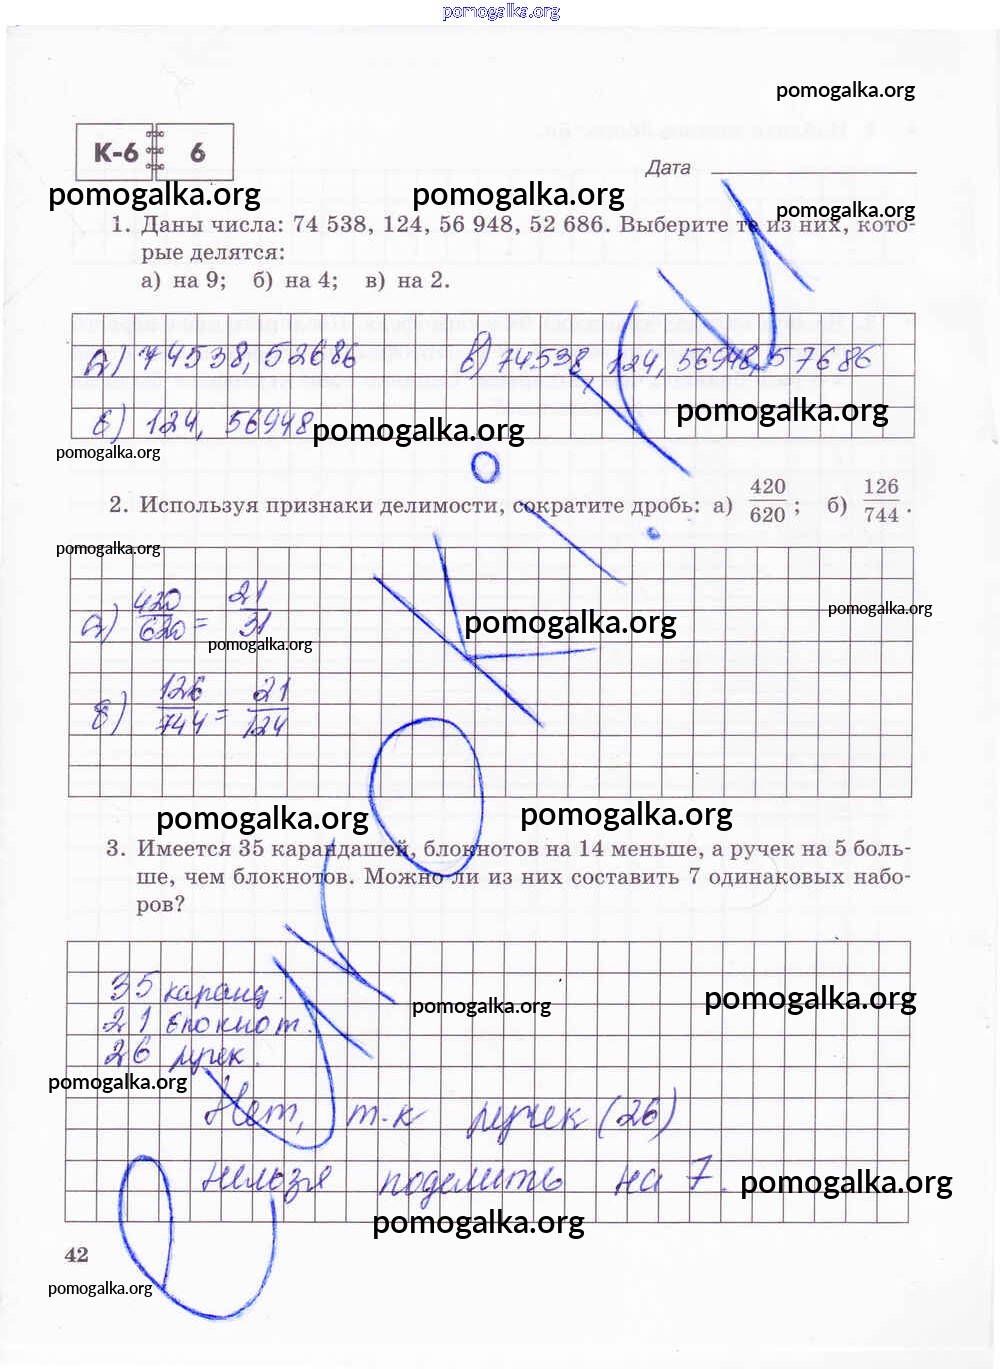 pomogalka.org
pomogalka.org
К-6 6
Дата
pomogalka.org pomogalka.org pomogalka.org
1. Даны числа: 74 538, 124, 56 948, 52 686. Выберите те из них, кото-
рые делятся:
а) на 9; б) на 4; в) на 2.
а) 74538, 52686 в) 74538, 124, 56948, 57686
б) 124, 56948
pomogalka.org pomogalka.org
pomogalka.org
2. Используя признаки делимости, сократите дробь: а) 420/620; б) 126/744.
pomogalka.org
а) 420/620 = 21/31
pomogalka.org pomogalka.org
pomogalka.org
б) 126/744 = 21/124
pomogalka.org pomogalka.org
3. Имеется 35 карандашей, блокнотов на 14 меньше, а ручек на 5 боль-
ше, чем блокнотов. Можно ли из них составить 7 одинаковых набо-
ров?
35 каранд.
pomogalka.org pomogalka.org
21 блокнот.
26 ручек.
pomogalka.org
Нет, т.к ручек (26)
нельзя поделить на 7.
pomogalka.org
pomogalka.org
42
pomogalka.org